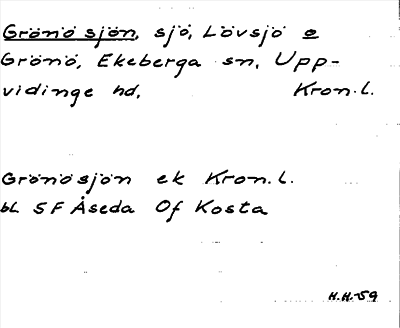 Grönö sjön, sjö, Lövsjö o
Grönö, Ekeberga sn, Upp-
vidinge hd, Kron.l.
Grönösjön ek Kron.l.
bl 5F Åseda Of Kosta
H.H.-59